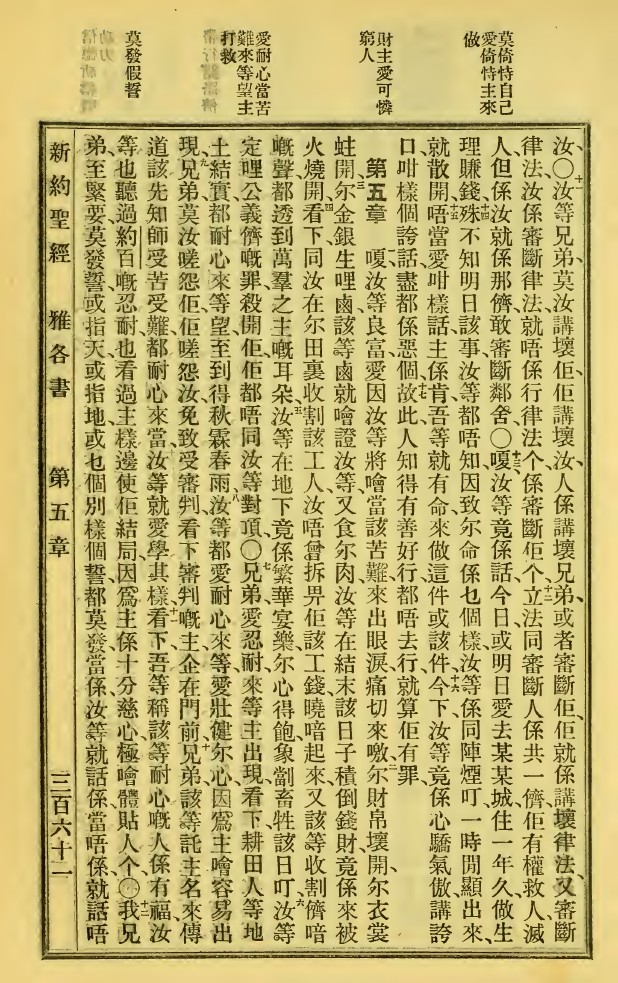 莫倚恃自己
愛倚恃主來
做
財主愛可憐
窮人
愛耐心當苦
難來等望主
打救
莫發假誓
汝、〇十一汝等兄弟、莫汝講壞佢、佢講壞汝、人係講壞兄弟、或者審斷佢、佢就係講壞律法、又審斷
律法、汝係審斷律法、就唔係行律法个、係審斷佢个、十二立法同審斷人係共一儕、佢有權救人、滅
人、但係汝就係那儕、敢審斷鄰舍、〇十三嗄、汝等竟係話、今日或明日愛去某某城、住一年久、做生
理賺錢、十四殊不知明日該事、汝等都唔知、因致尔命係乜個樣、汝等係同陣煙、叮一時閒顯出來、
就散開、十五唔當愛咁樣話、主係肯、吾等就有命來做這件或該件、十六今下汝等竟係心驕氣傲講誇
口、咁樣個誇話、盡都係惡個、十七故此人知得有善好行、都唔去行、就算佢有罪
第五章　嗄、汝等良富愛因汝等將噲當該苦難來出眼淚痛切來噭、二尔財帛壞開、尔衣裳
蛀開、三尔金銀生哩鹵、該等鹵就噲證汝等、又食尔肉、汝等在結末該日子積倒錢財、竟係來被
火燒開、四看下、同汝在尔田裏收割該工人、汝唔曾拆畀佢該工錢、曉喑起來、又該等收割儕喑
嘅聲、都透到萬羣之主嘅耳朵、五汝等在地下、竟係繁華宴樂、尔心得飽、象劏畜牲該日叮、六汝等
定哩公義儕嘅罪、殺開佢、佢都唔同汝等對頂、〇七兄弟、愛忍耐來等主出現、看下、耕田人等地
土結實、都耐心來等望、至到得秋霖春雨、八汝等都愛耐心來等、愛壯健尔心、因爲主噲容易出
現、九兄弟、莫汝嗟怨佢、佢嗟怨汝、免致受審判、看下、審判嘅主企在門前、十兄弟、該等託主名來傳
道該先知師、受苦受難、都耐心來當、汝等就愛學其樣、十一看下、吾等稱該等耐心嘅人係有福、汝
等也聽過約百嘅忍耐、也看過主樣邊使佢結局、因爲主係十分慈心、極噲體貼人个、〇十二我兄
弟、至緊要莫發誓、或指天、或指地、或乜個別樣個誓、都莫發、當係汝等就話係、當唔係、就話唔
新約聖經　雅各書　第五章　三百六十一